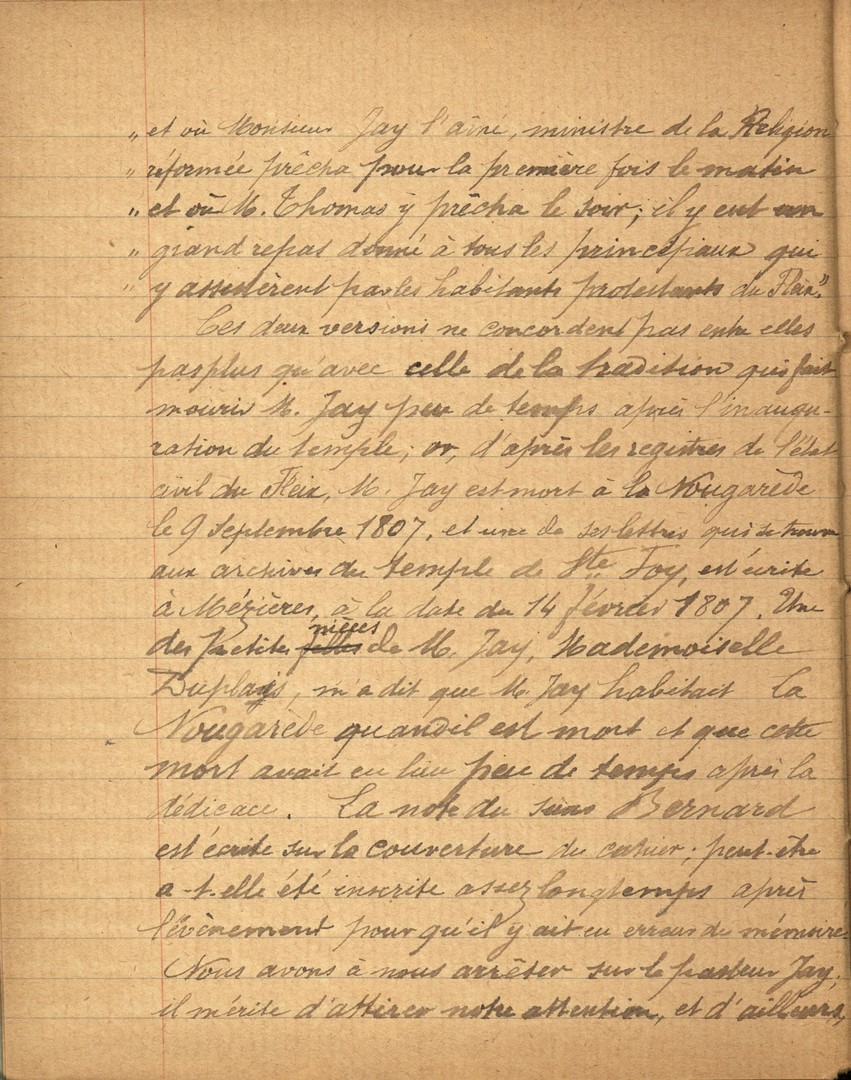 „ et où Monsieur Jay l'aîné, ministre de la Religion
„ réformée prêcha pour la première fois le matin
„ et où M. Thomas y prêcha le soir; il y eut un
„ grand repas donné à tous les principaux qui
„ y assistèrent par les habitants protestants du Fleix."
Ces deux versions ne concordent pas entre elles
pas plus qu'avec celle de la tradition qui fait
mourir M. Jay peu de temps après l'inaugu-
ration du temple; or, d'après les registres de l'état
civil du Fleix, M. Jay est mort à la Nougarède
le 9 Septembre 1807, et une de ses lettres qui se trouve
aux archives du temple de Ste Foy, est écrite
à Mézières, à la date du 14 février 1807. Une
des petites filles nièces de M. Jay, Mademoiselle
Duplais, m'a dit que M. Jay habitait la
Nougarède quand il est mort et que cette
mort avait eu lieu peu de temps après la
dédicace. La note du sieur Bernard
est écrite sur la couverture du cahier; peut-être
a-t-elle été inscrite assez longtemps après
l'évènement pour qu'il y ait eu erreur de mémoire.
Nous avons à nous arrêter sur le pasteur Jay,
il mérite d'attirer notre attention, et d'ailleurs,